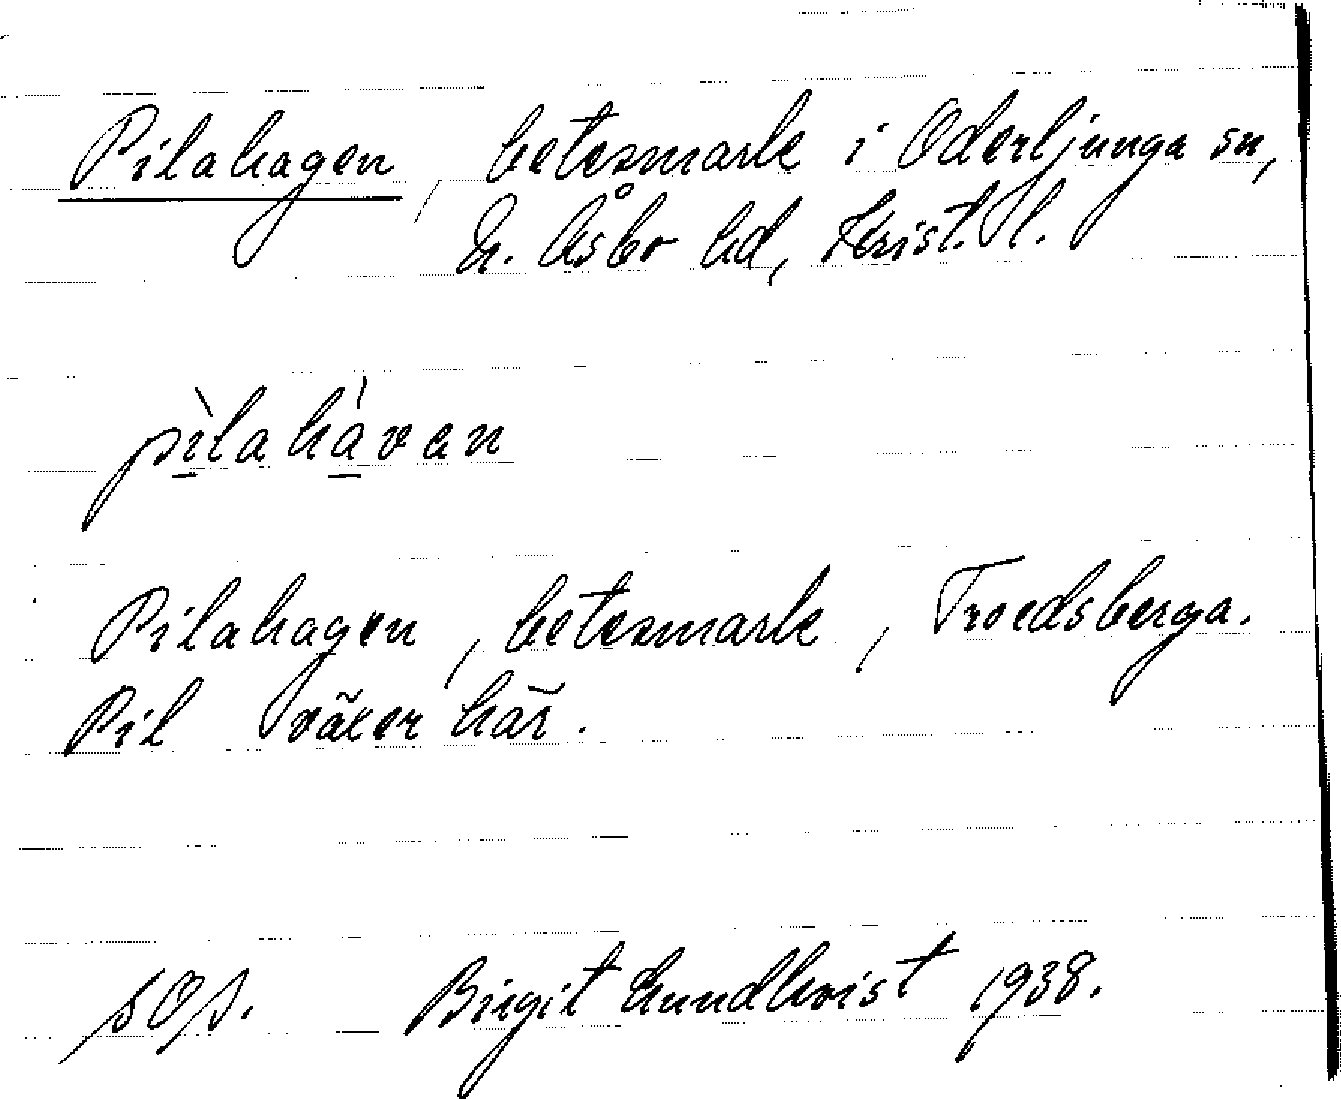 Pilahagen, betesmark i Oderljunga sn,
N. Åsbo hd, Krist. l.
pìlahávan
Pilahagen, betesmark, Troedsberga.
Pil växer här.
Birgit Lundkvist 1938.